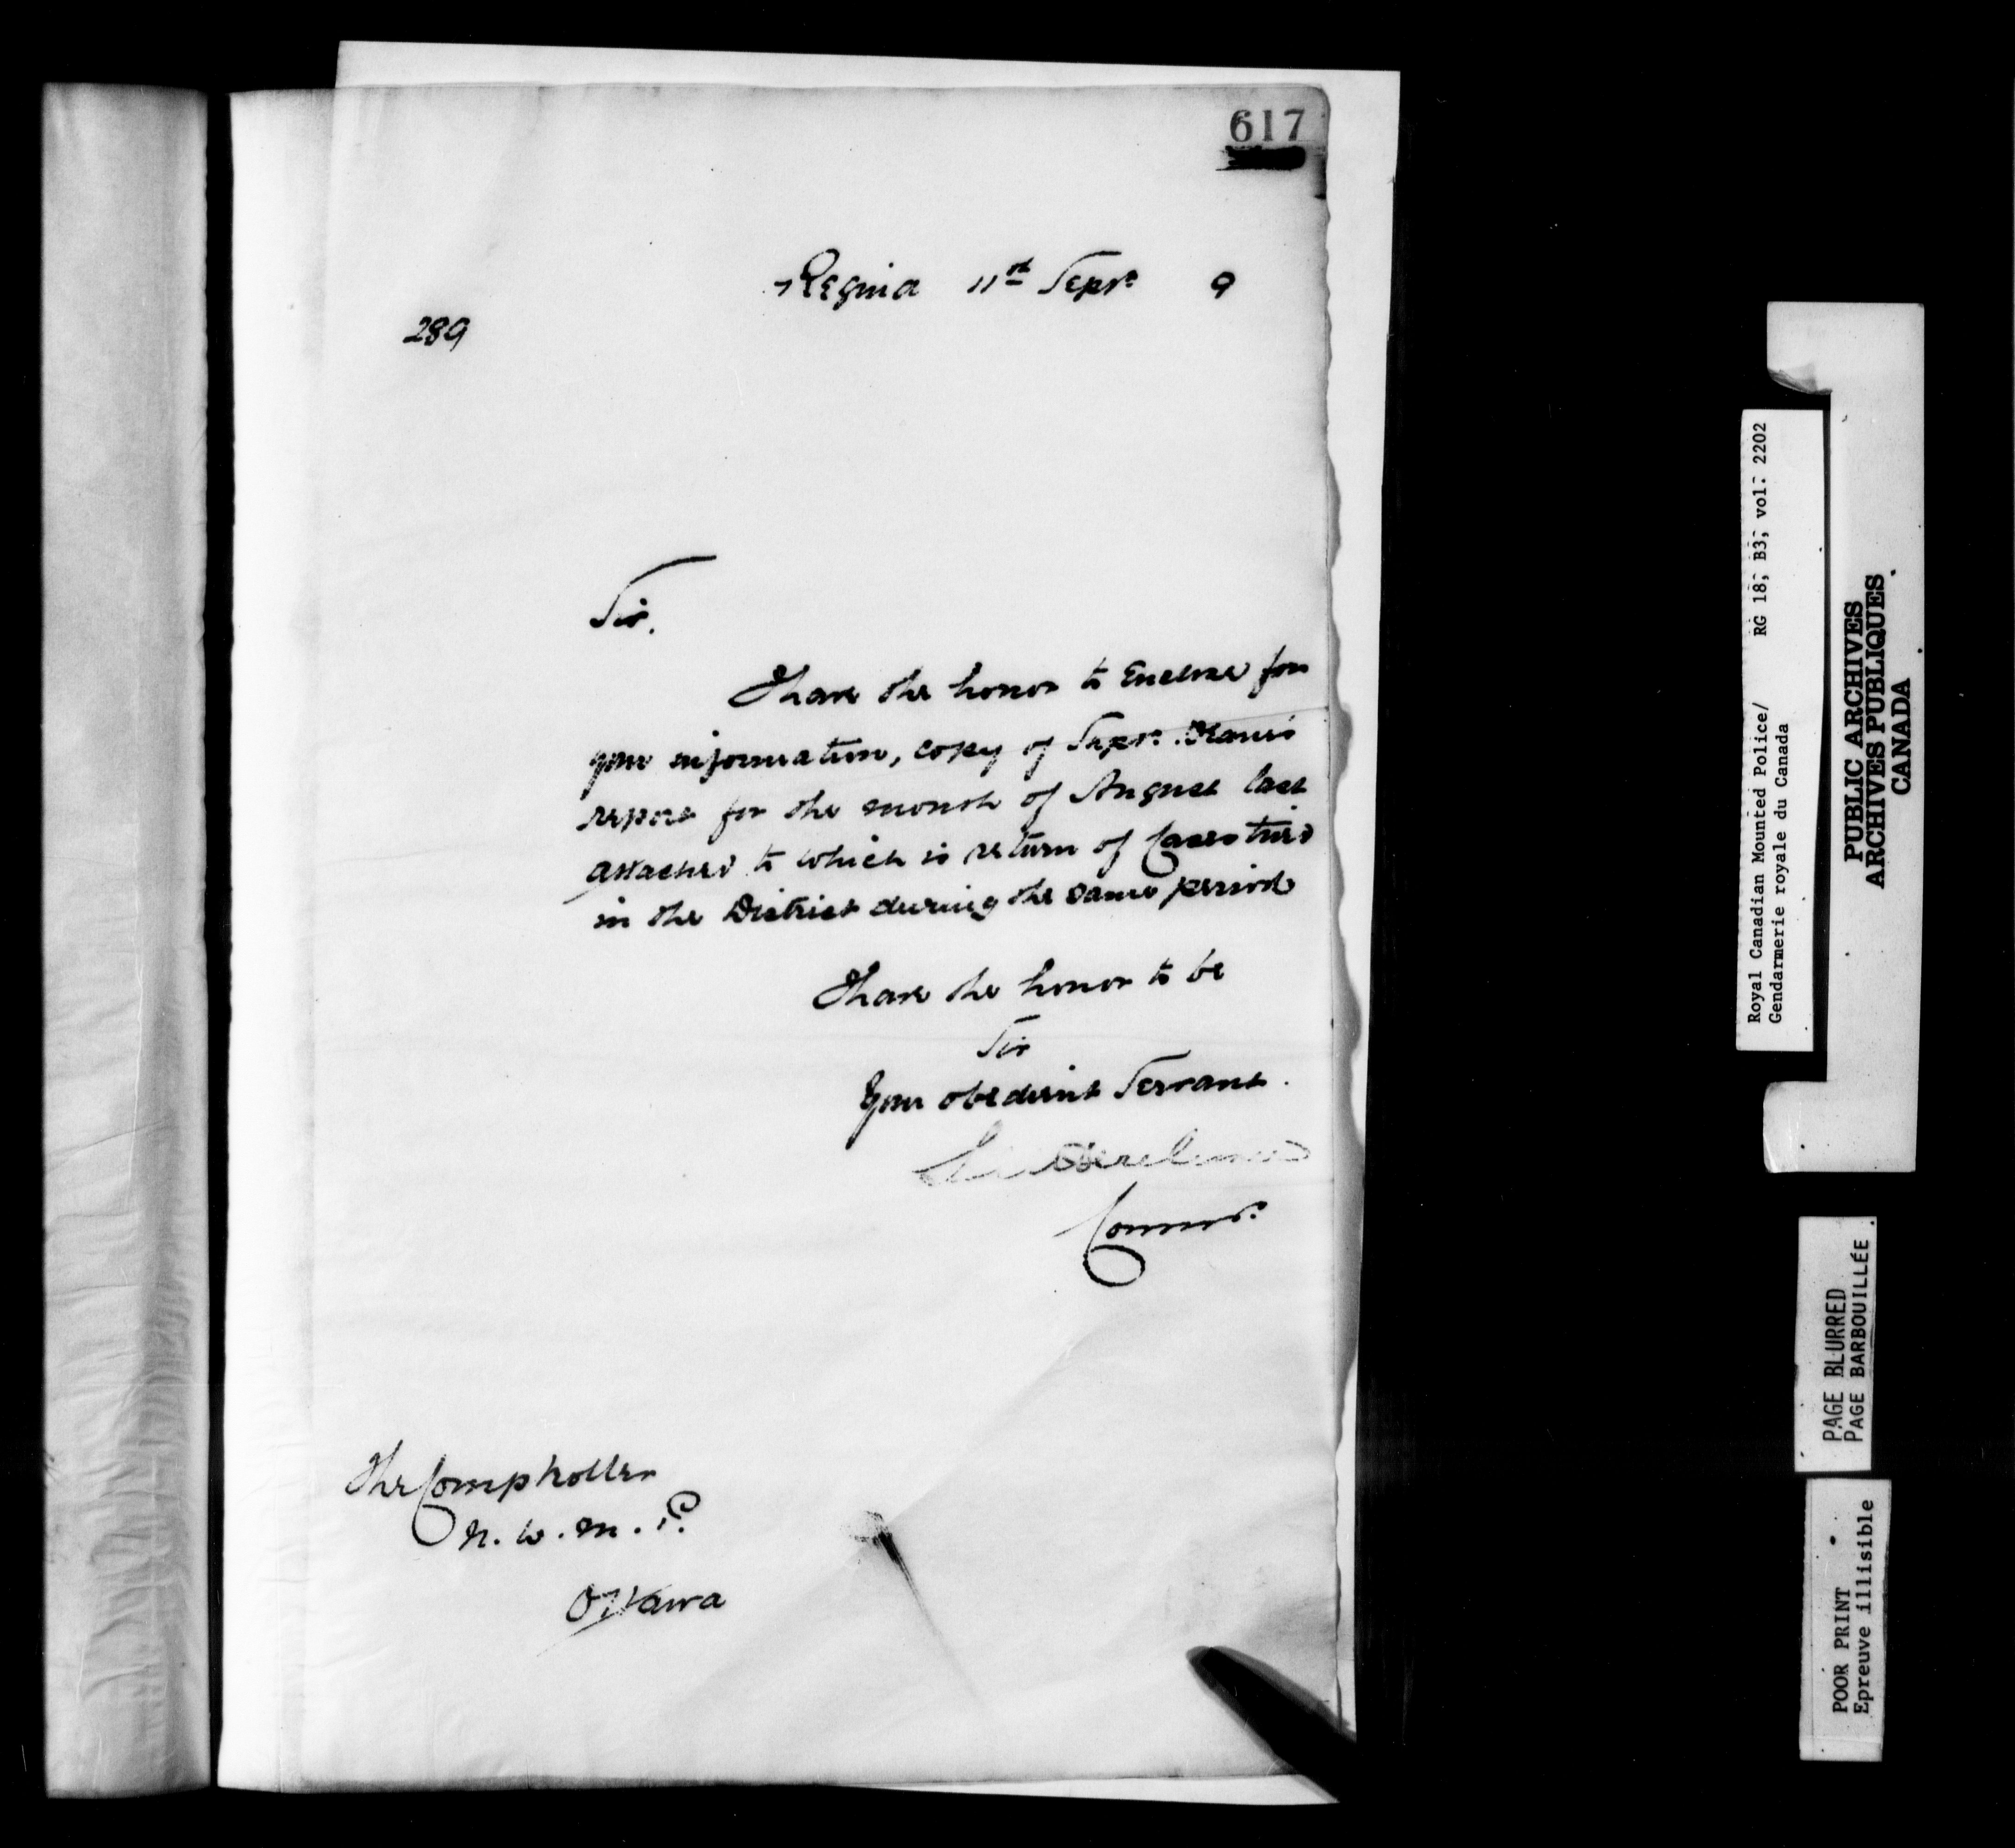 617
Regina 11th Sept. 9
289
Sir,
I have the honor to Enclose for
your information, copy of Supt. Deane's
report for the month of August last
attached to which is return of Cases tried
in the District during the same period
I have the honor to be
Sir
Your obedient Servant.
Commr.
The Comptroller
N. W. M. P.
Ottawa
Royal Canadian Mounted Police/ RG 18; B3; vol: 2202
Gendarmerie royale du Canada
PUBLIC ARCHIVES
ARCHIVES PUBLIQUES
CANADA
PAGE BLURRED
PAGE BARBOUILLÉE
POOR PRINT
Epreuve illisible